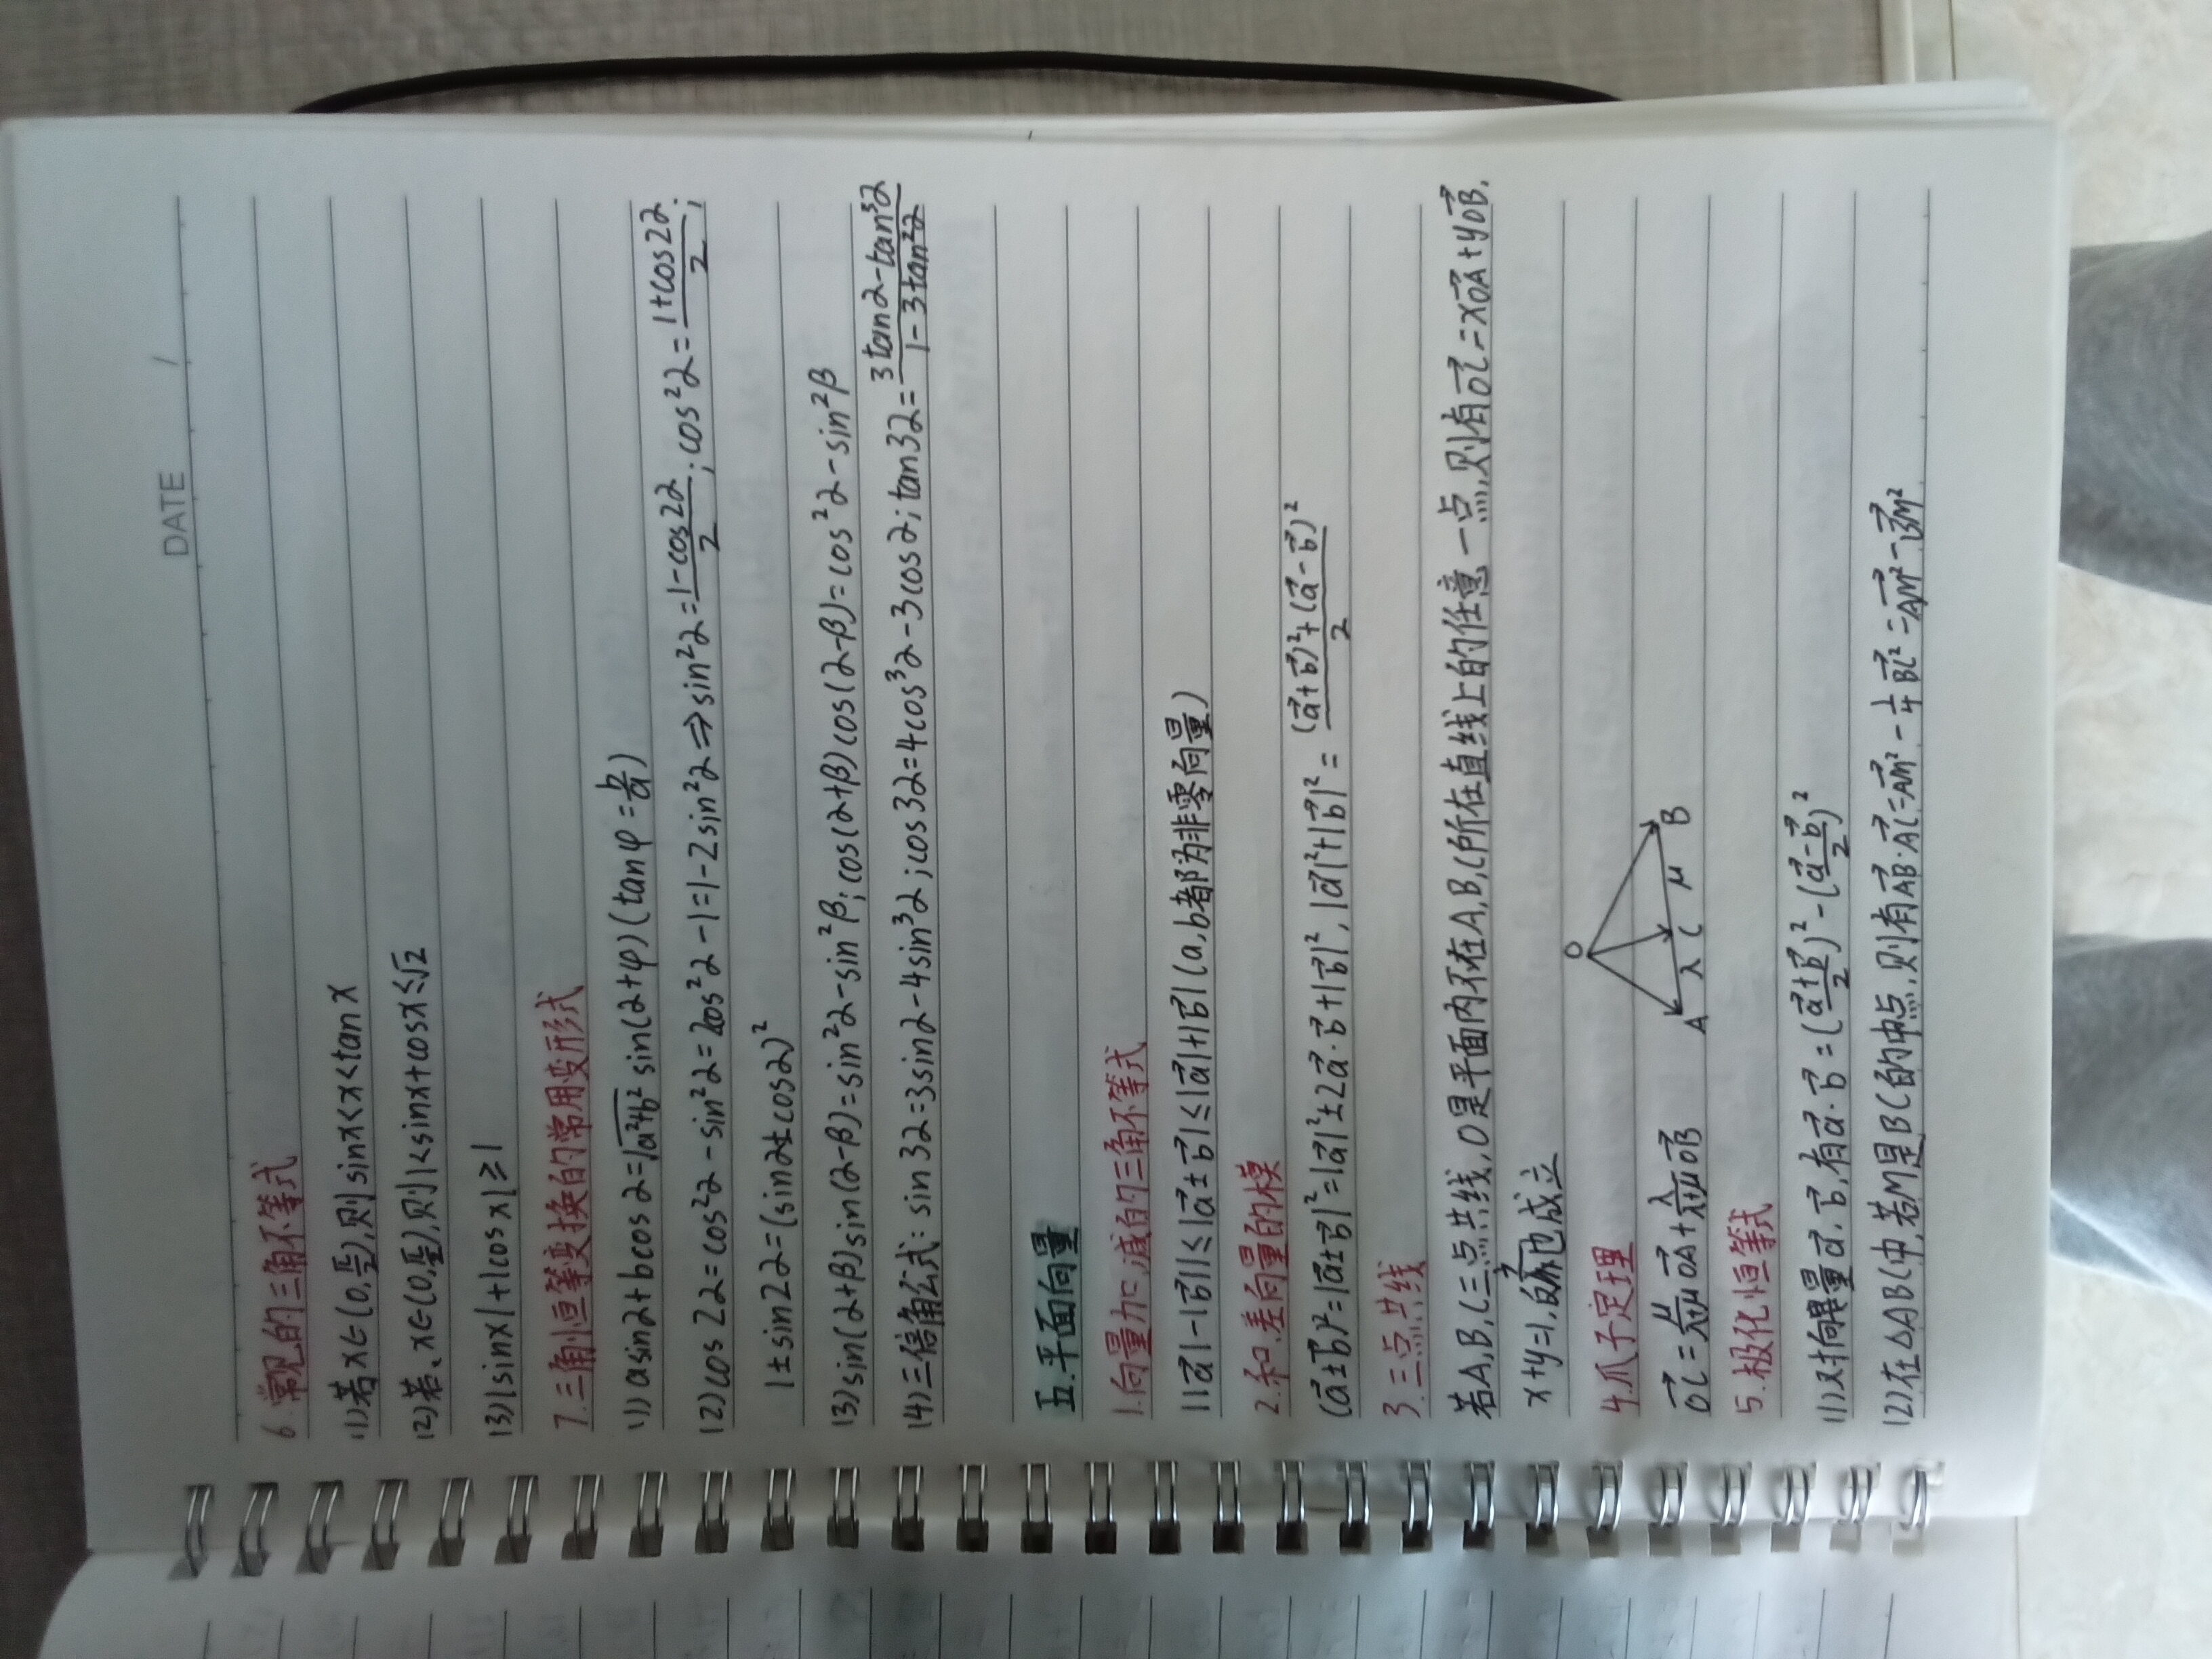 DATE /
6.常见的三角不等式
(1)若x∈(0,π/2),则sinx<x<tanx
(2)若x∈(0,π/2),则1<sinx+cosx≤√2
(3)|sinx|+|cosx|≥1
7.三角恒等变换的常用变形式
(1)asinα+bcosα=√(a²+b²) sin(α+φ)(tanφ=b/a)
(2)cos2α=cos²α-sin²α=2cos²α-1=1-2sin²α⇒sin²α=(1-cos2α)/2;cos²α=(1+cos2α)/2;
1±sin2α=(sinα±cosα)²
(3)sin(α+β)sin(α-β)=sin²α-sin²β;cos(α+β)cos(α-β)=cos²α-sin²β
(4)三倍角公式:sin3α=3sinα-4sin³α;cos3α=4cos³α-3cosα;tan3α=(3tanα-tan³α)/(1-3tan²α)
五.平面向量
1.向量加、减的三角不等式
||a⃗|-|b⃗||≤|a⃗±b⃗|≤|a⃗|+|b⃗|(a,b都为非零向量)
2.和、差向量的模
(a⃗±b⃗)²=|a⃗±b⃗|²=|a⃗|²±2a⃗·b⃗+|b⃗|²,|a⃗|²+|b⃗|²=((a⃗+b⃗)²+(a⃗-b⃗)²)/2
3.三点共线
若A,B,C三点共线,O是平面内不在A,B,C所在直线上的任意一点,则有OC⃗=xOA⃗+yOB⃗,
x+y=1,也成立
4.爪子定理
OC⃗=μ/(λ+μ)OA⃗+λ/(λ+μ)OB⃗
O
A λ C μ B
5.极化恒等式
(1)对向量a⃗,b⃗,有a⃗·b⃗=((a⃗+b⃗)/2)²-((a⃗-b⃗)/2)²
(2)在△ABC中,若M是BC的中点,则有AB⃗·AC⃗=AM⃗²-1/4BC⃗²=AM⃗²-BM⃗²